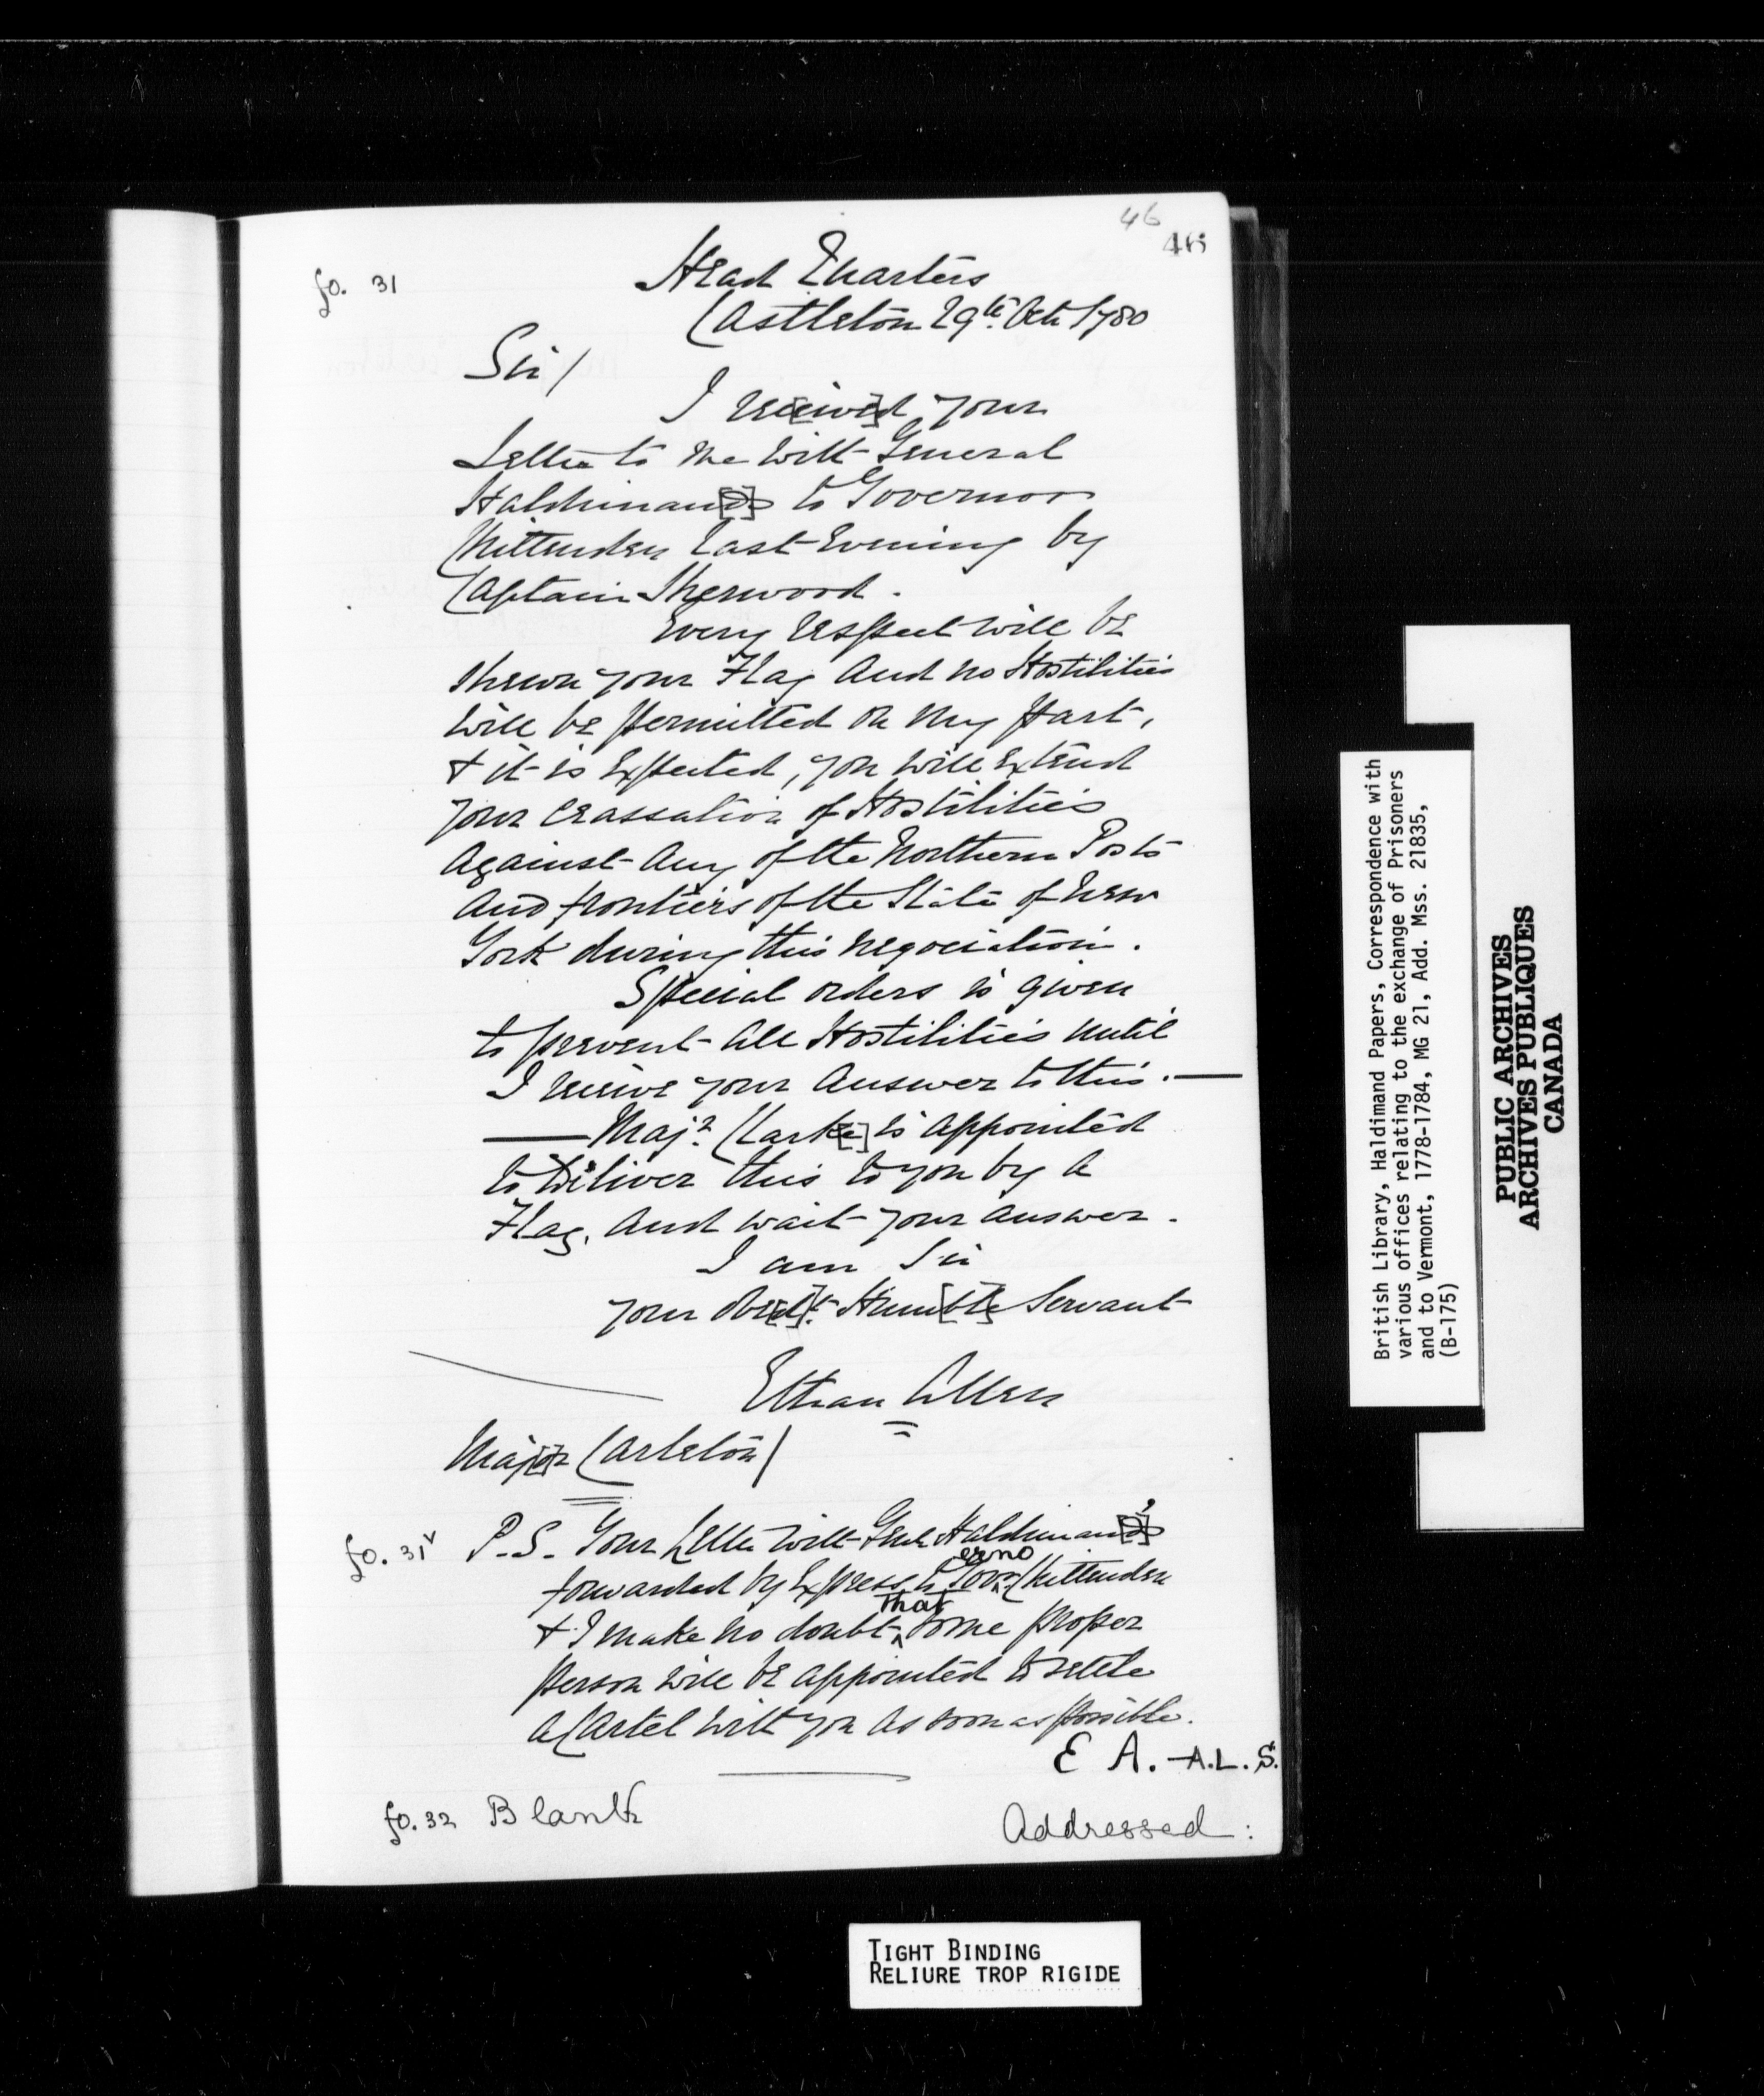 46
46
fo. 31
Head Quarters
Castleton 29th. Octr 1780
Sir/
I rec[eive]d your
Letter to me with General
Haldiman[d]s to Governor
Chittenden Last Evening by
Captain Sherwood.
Every respect will be
shewn your Flag And no Hostilities
will be permitted on my part,
& it is Expected, you will Extend
your Ceassation of Hostilities
Against Any of the Northern Posts
And frontiers of the State of New
York during this negociation.
Special orders is given
to prevent All Hostilities until
I receive your Answer to this.—
—Majr. Clark[e] is appointed
to Diliver this to you by a
Flag, And wait your answer.
I am Sir
your obed[ien]t. Hum[ble] Servant
Ethan Allen
Maj[o]r Carleton/
fo. 31v P.S. Your Letter with Genl. Haldiman[d]'s
forwarded by Express to Governor Chittenden
& I make no doubt that some proper
person will be appointed to setle
a Cartel with you as soon as possible.
E A. —A.L.S.
fo. 32 Blank
Addressed:
British Library, Haldimand Papers, Correspondence with
various offices relating to the exchange of Prisoners
and to Vermont, 1778-1784, MG 21, Add. Mss. 21835,
(B-175)
PUBLIC ARCHIVES
ARCHIVES PUBLIQUES
CANADA
TIGHT BINDING
RELIURE TROP RIGIDE